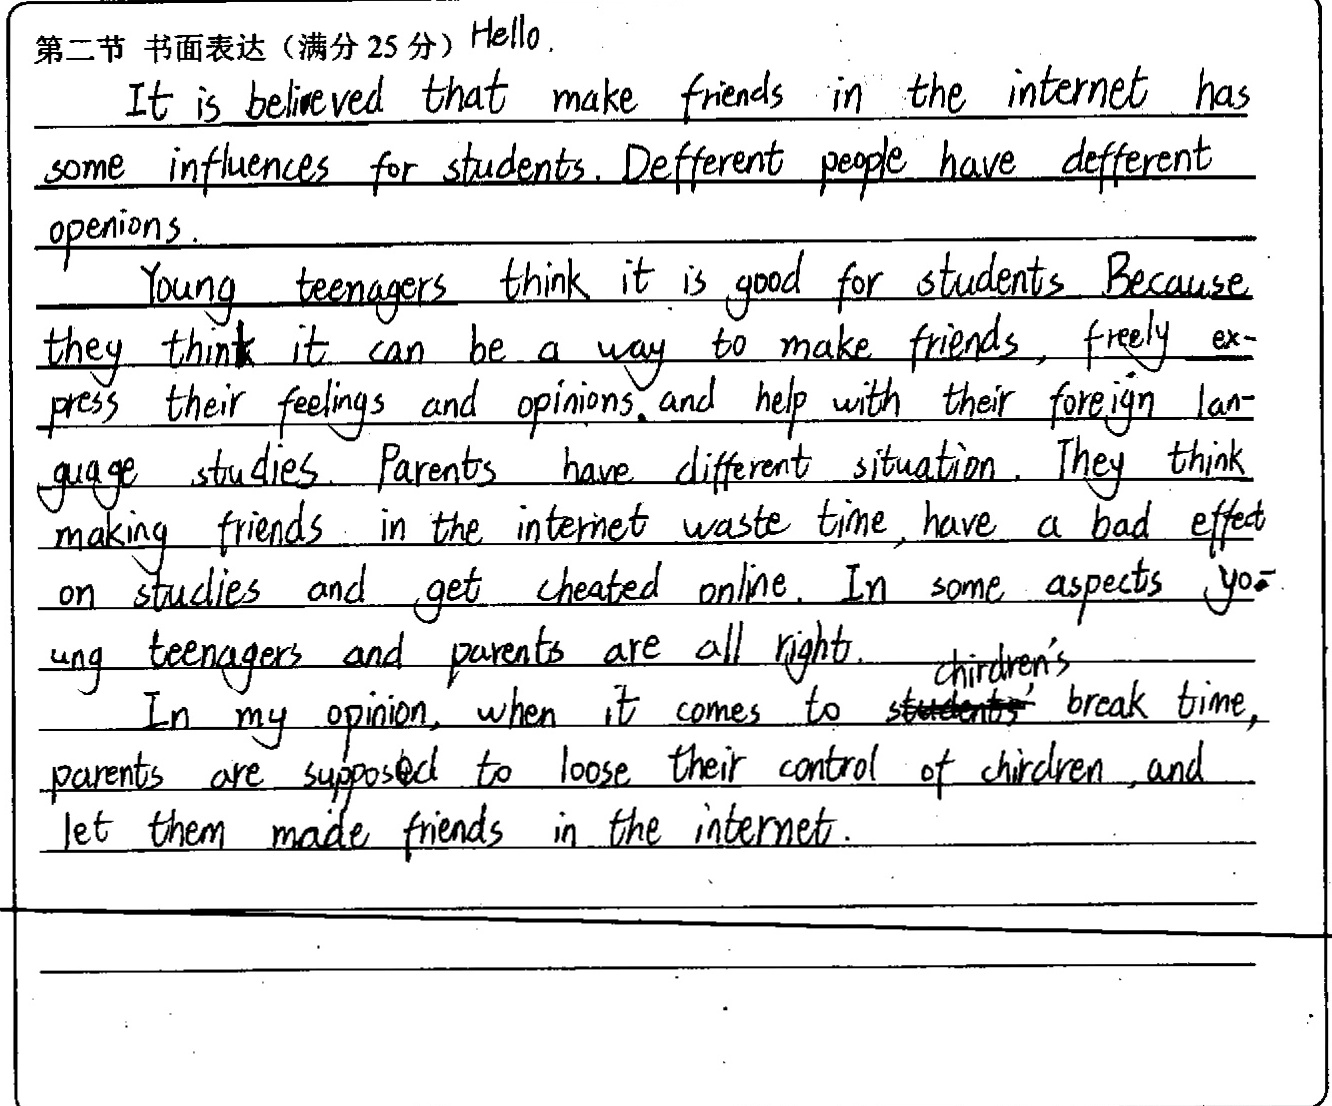 第二节 书面表达（满分 25 分） Hello.
It is believed that make friends in the internet has
some influences for students. Defferent people have defferent
openions.
Young teenagers think it is good for students Because
they think it can be a way to make friends, freely ex-
press their feelings and opinions. and help with their foreign lan-
guage studies. Parents have different situation. They think
making friends in the internet waste time, have a bad effect
on studies and get cheated online. In some aspects yo-
ung teenagers and parents are all right.
In my opinion, when it comes to chirdren's break time,
parents are supposed to loose their control of chirdren, and
let them made friends in the internet.